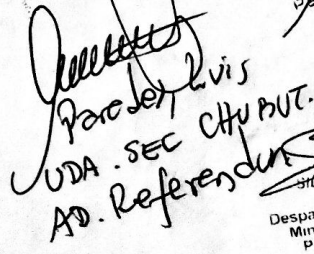 Paredes, Luis
UDA. SEC CHUBUT.
AD. Referendum
Despa
Min
P